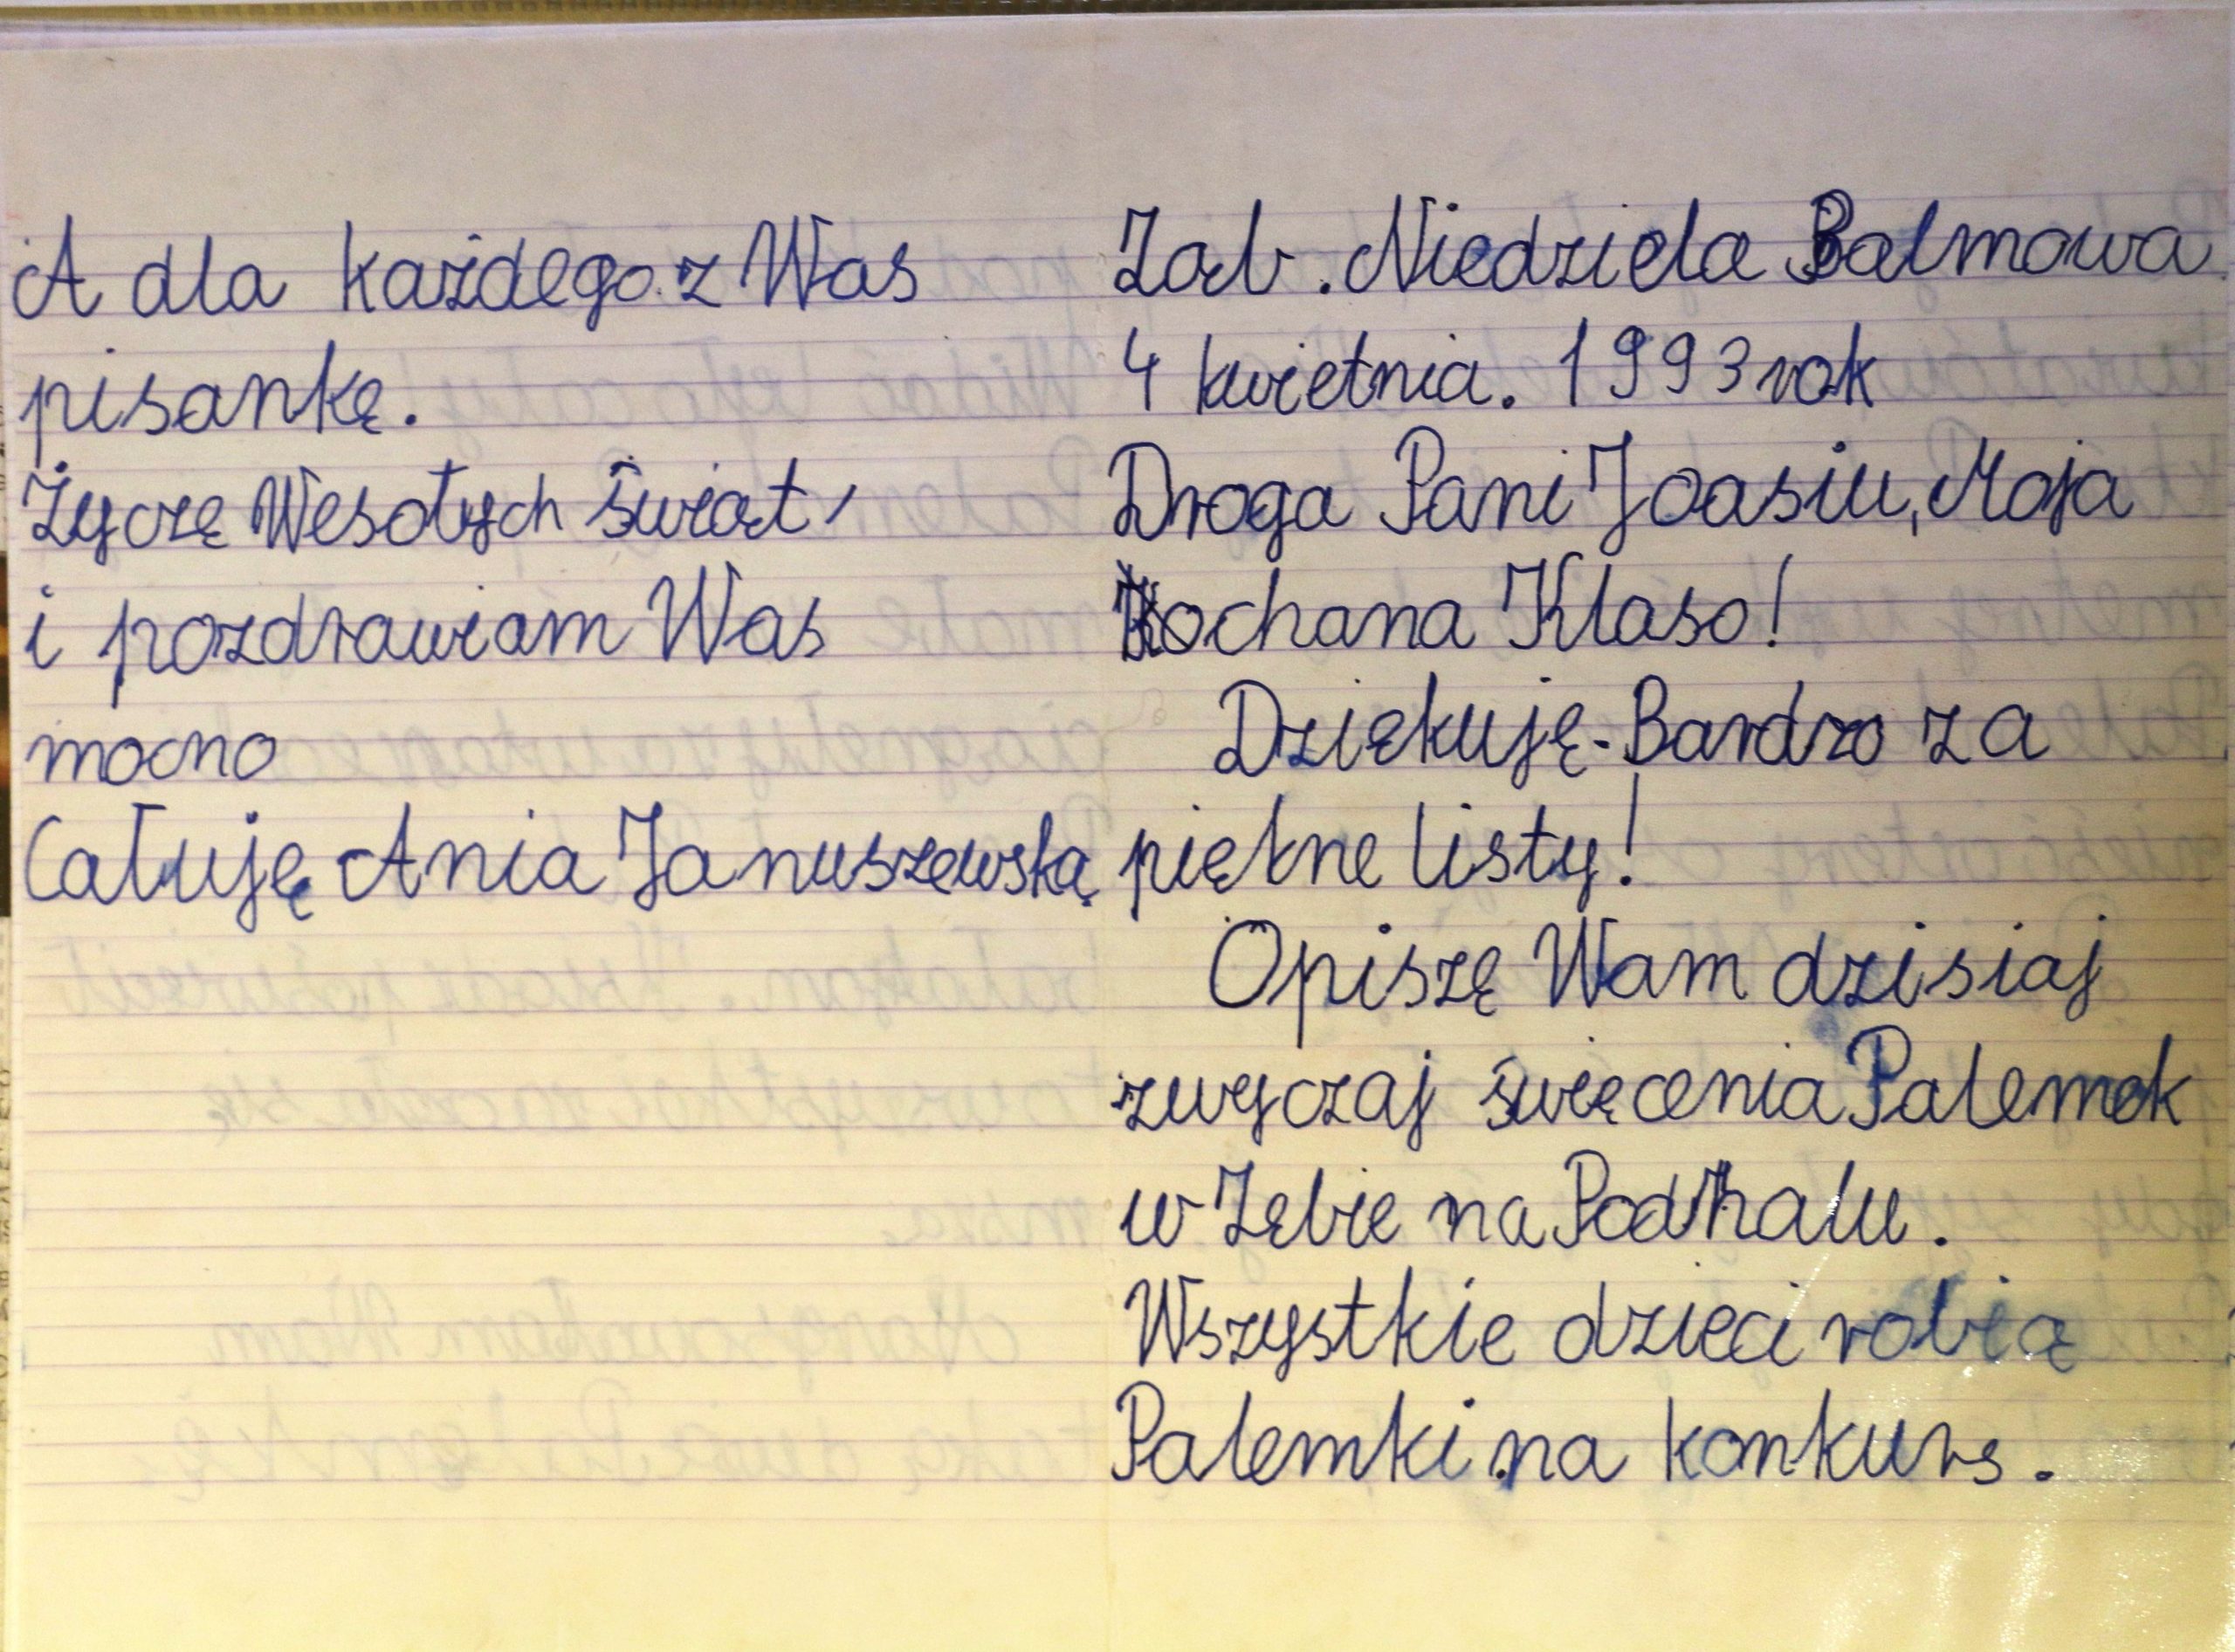 A dla każdego z Was
pisankę.
Życzę Wesołych Świąt,
i pozdrawiam Was
mocno
Całuję Ania Januszewska
Ząb. Niedziela Palmowa
4 kwietnia. 1993 rok
Droga Pani Joasiu, Moja
Kochana Klaso!
Dziękuję Bardzo za
piękne listy!
Opiszę Wam dzisiaj
zwyczaj święcenia Palemek
w Zębie na Podhalu.
Wszystkie dzieci robią
Palemki na konkurs.